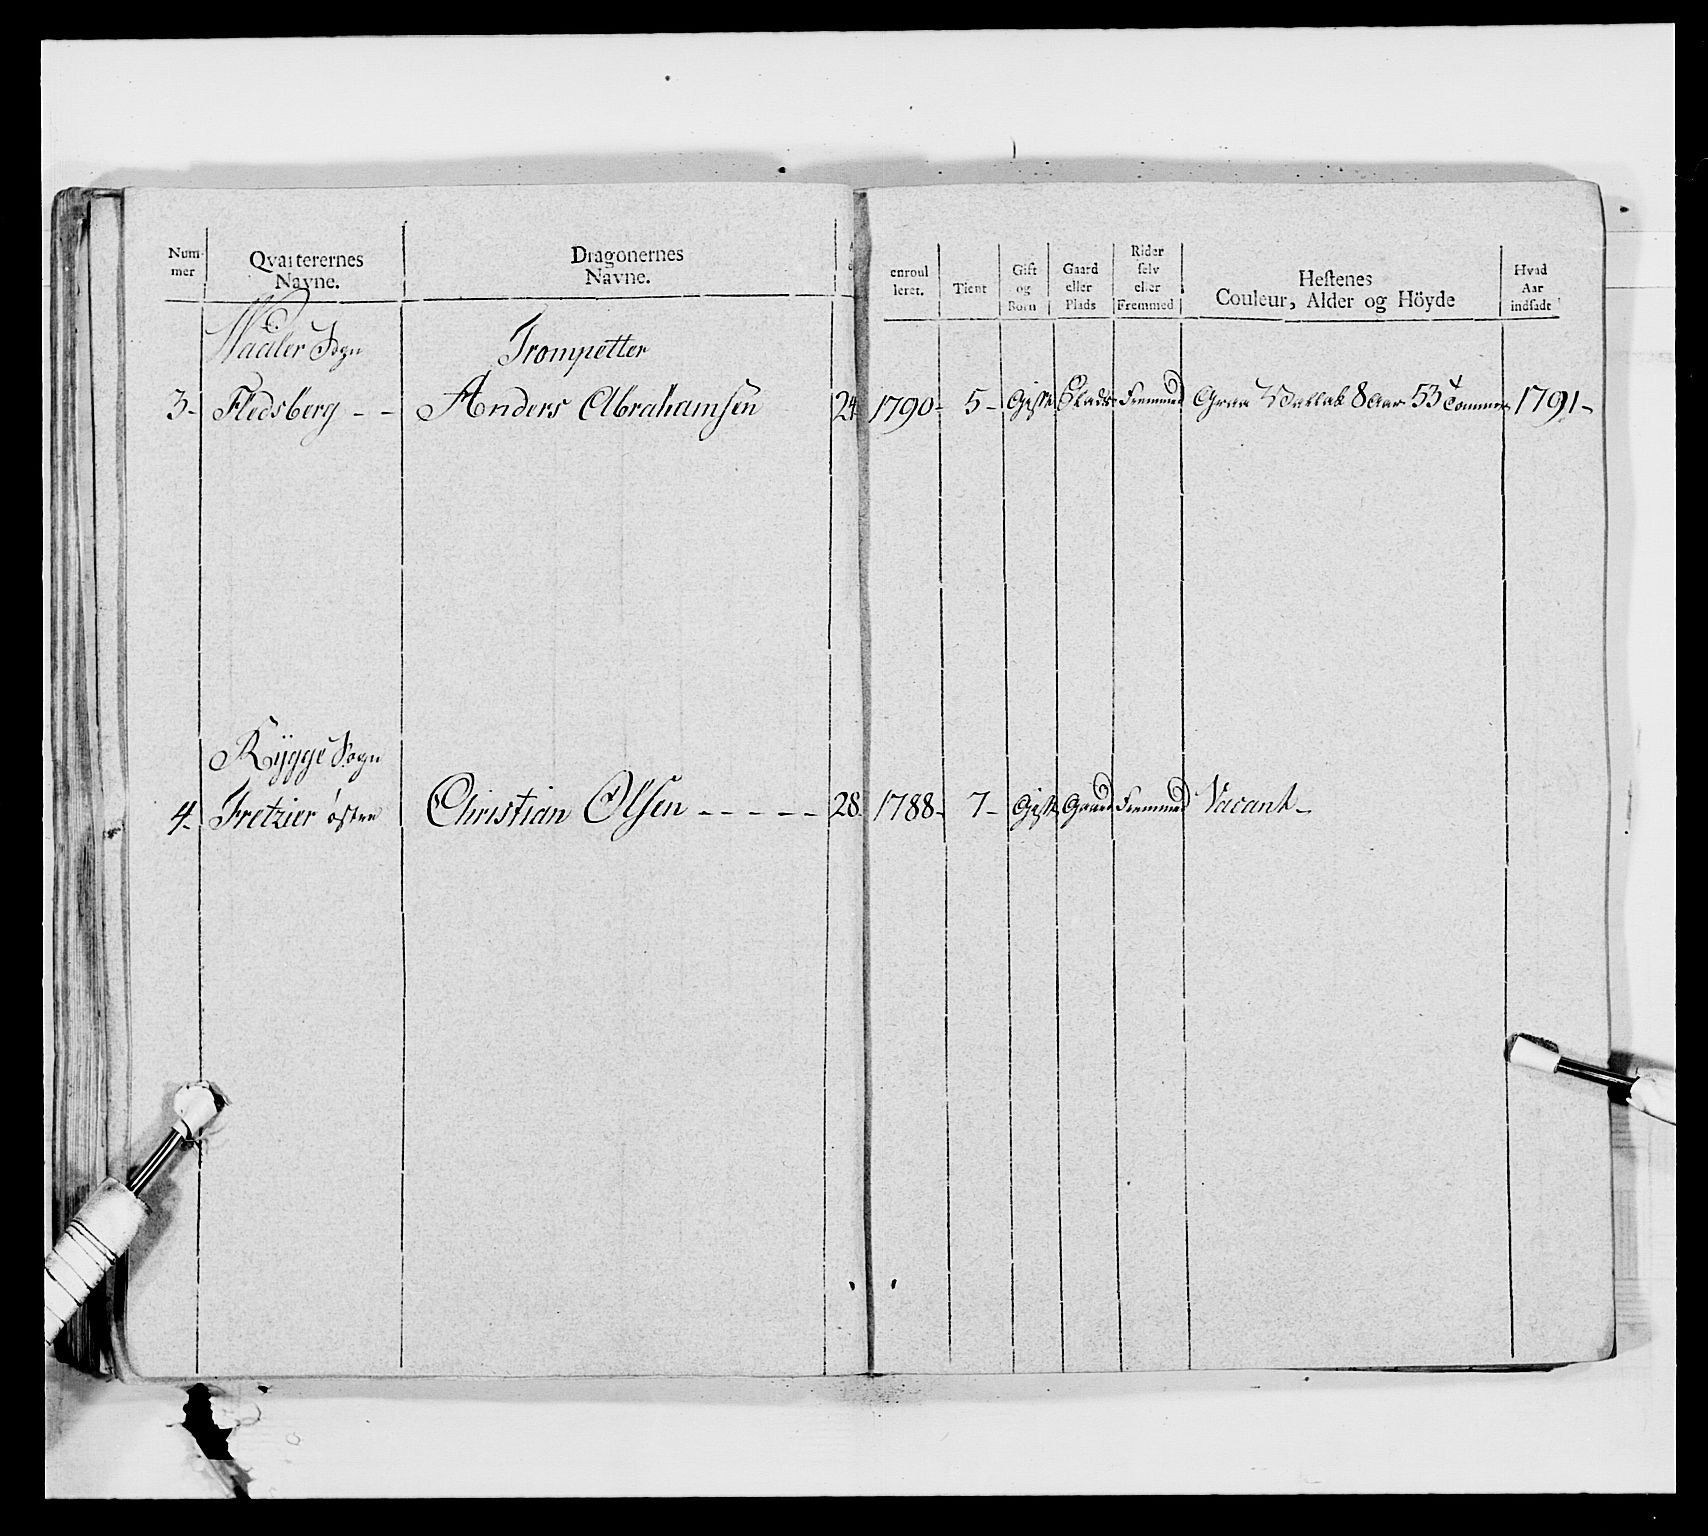 Num-
mer
Qvarterernes
Navne.
Dragonernes
Navne.
enroul
leret.
Tient
Gift
og
Börn
Gaard
eller
Plads
Rider
selv
eller
Fremmed
Hestenes
Couleur, Alder og Höyde
Hvad
Aar
indsadt
Waaler Sogn
Trompetter
3- Fledsberg - - Anders Abrahamsen 24 1790- 5- Gift Plads Fremmed Graa Vallak 8 Aar 53 Tommer 1791-
Rÿgge Sogn
4- Fretzier østre Christian Olsen - - - - - 28- 1788- 7- Gift Gaard Fremmed Vacant-